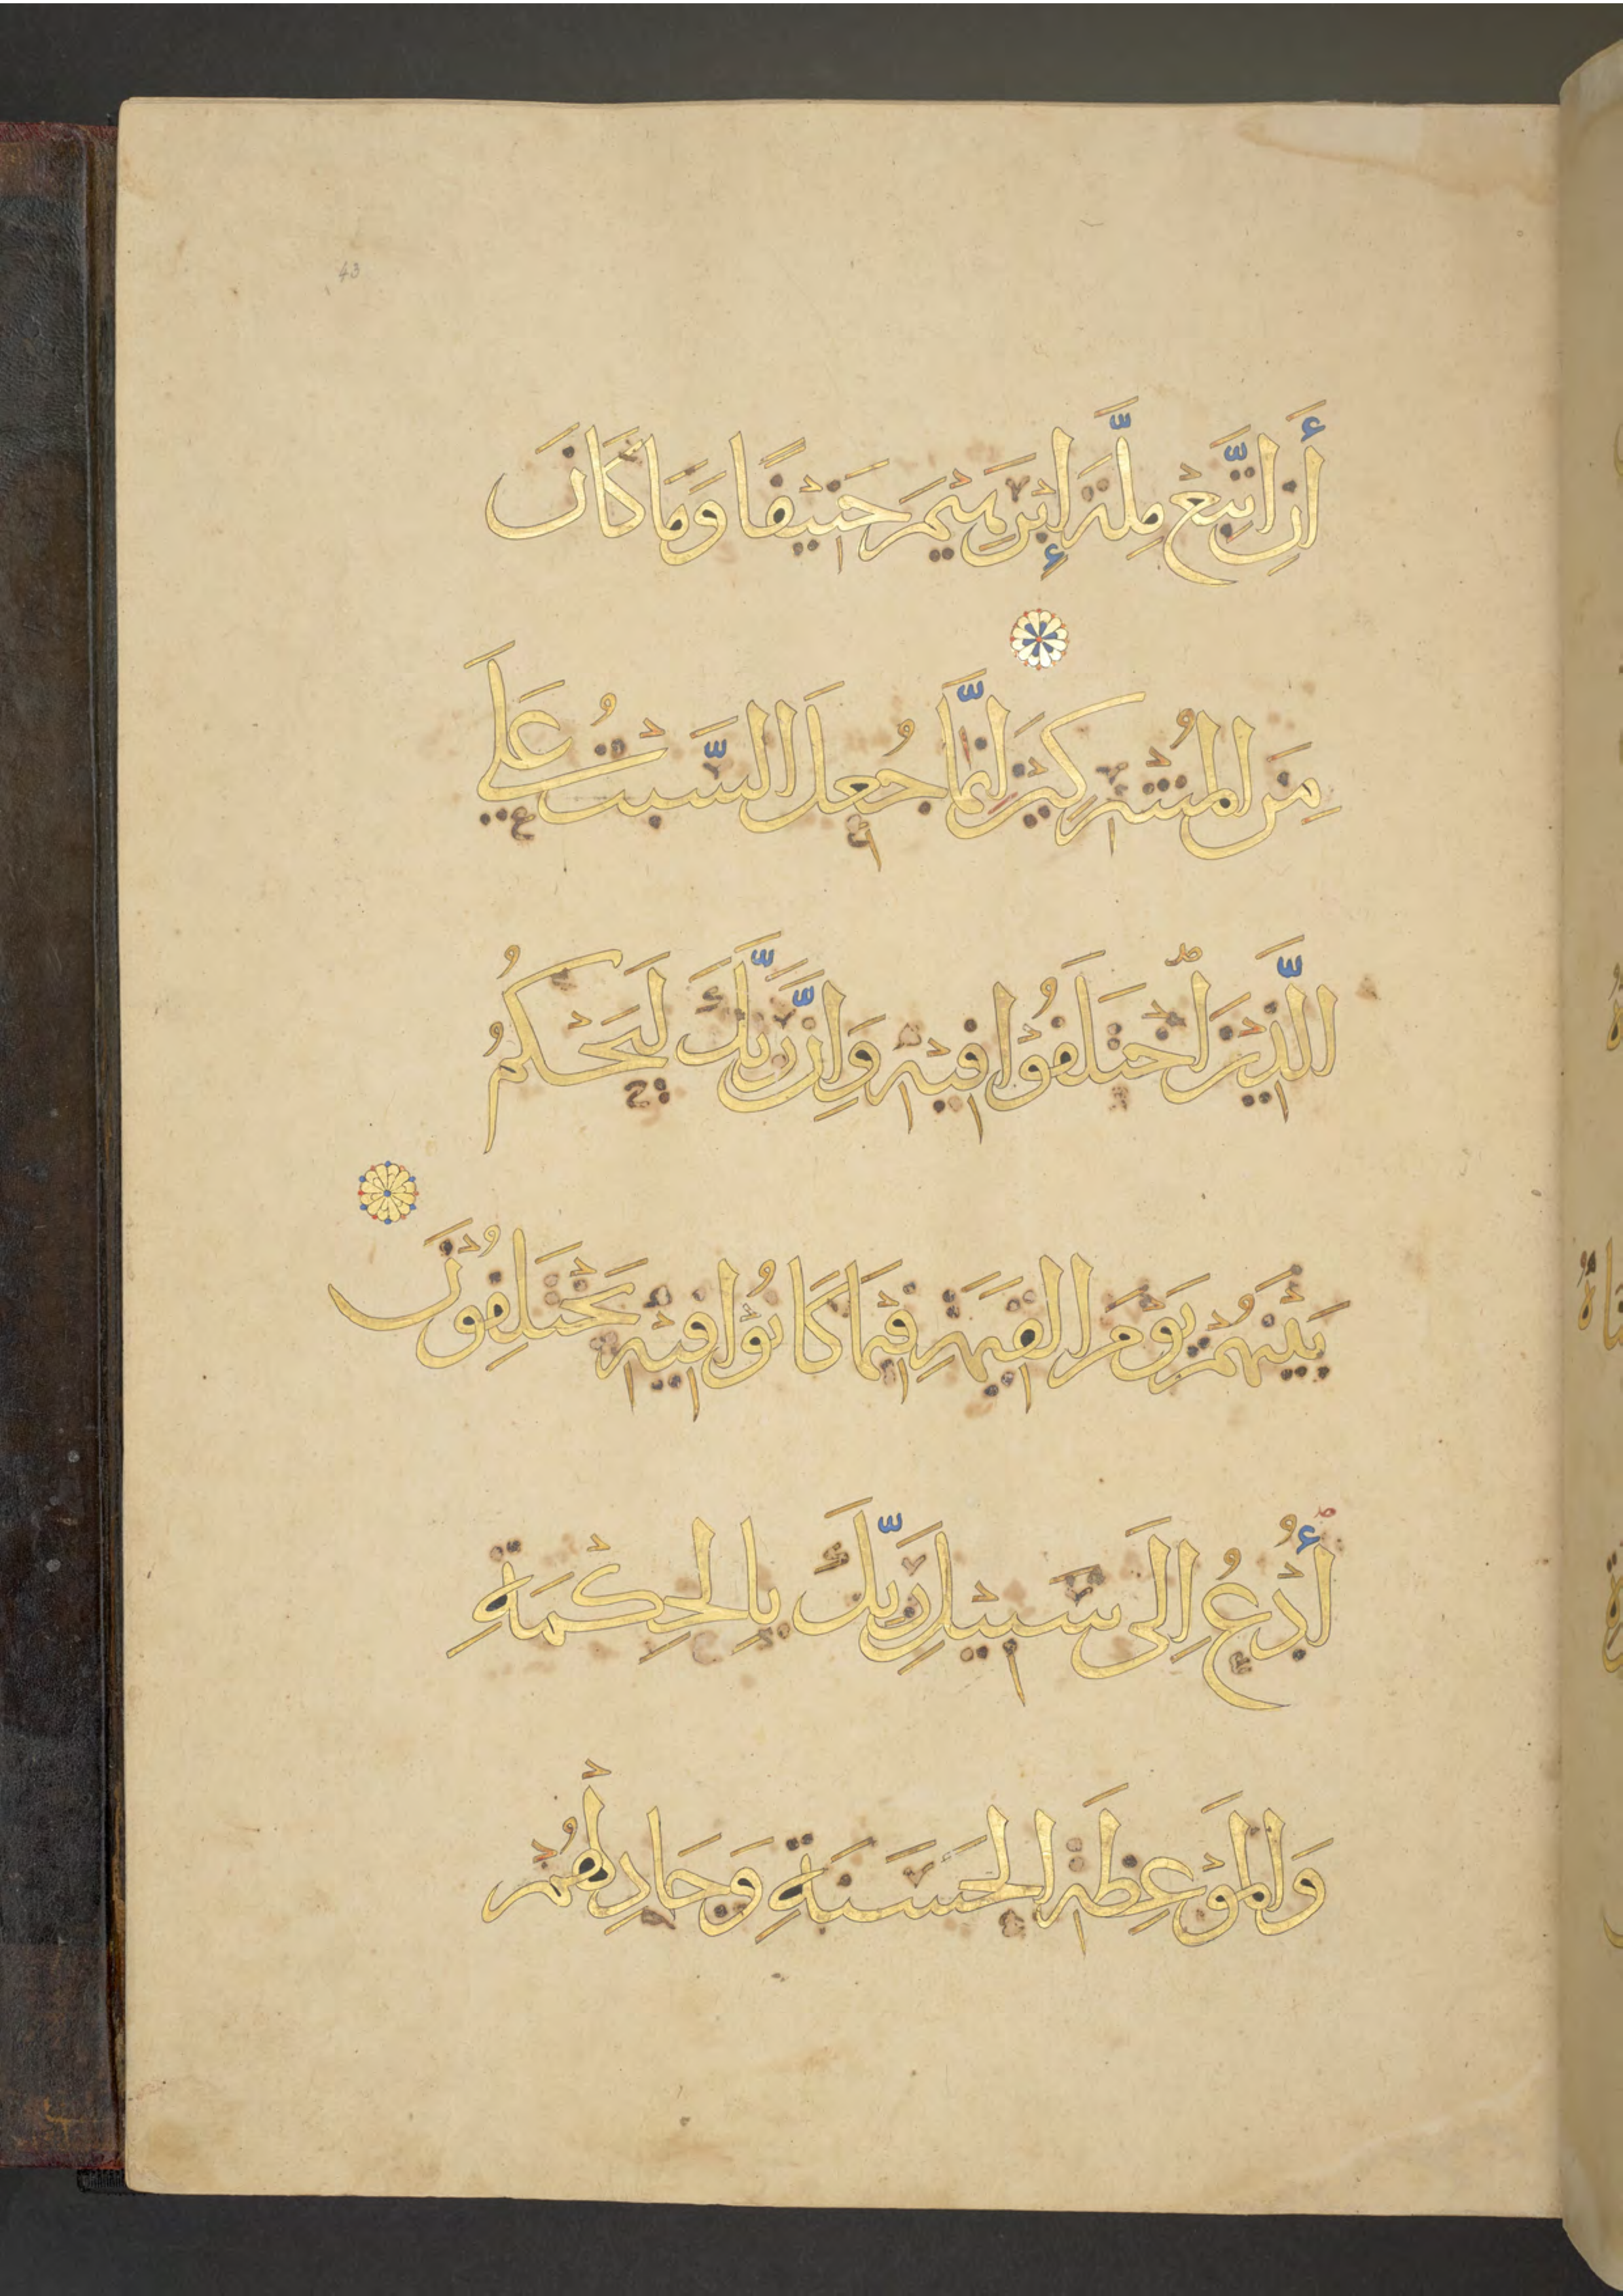 43
أَنِ اتَّبِعْ مِلَّةَ إِبْرَهِيْمَ حَنِيْفًا وَمَا كَانَ
مِنَ الْمُشْرِكِيْنَ اِنَّمَا جُعِلَ السَّبْتُ عَلَى
الَّذِيْنَ اخْتَلَفُوْا فِيْهِ وَاِنَّ رَبَّكَ لَيَحْكُمُ
بَيْنَهُمْ يَوْمَ الْقِيَمَةِ فِيْمَا كَانُوْا فِيْهِ يَخْتَلِفُوْنَ
أُدْعُ اِلَى سَبِيْلِ رَبِّكَ بِالْحِكْمَةِ
وَالْمَوْعِظَةِ الْحَسَنَةِ وَجَادِلْهُمْ